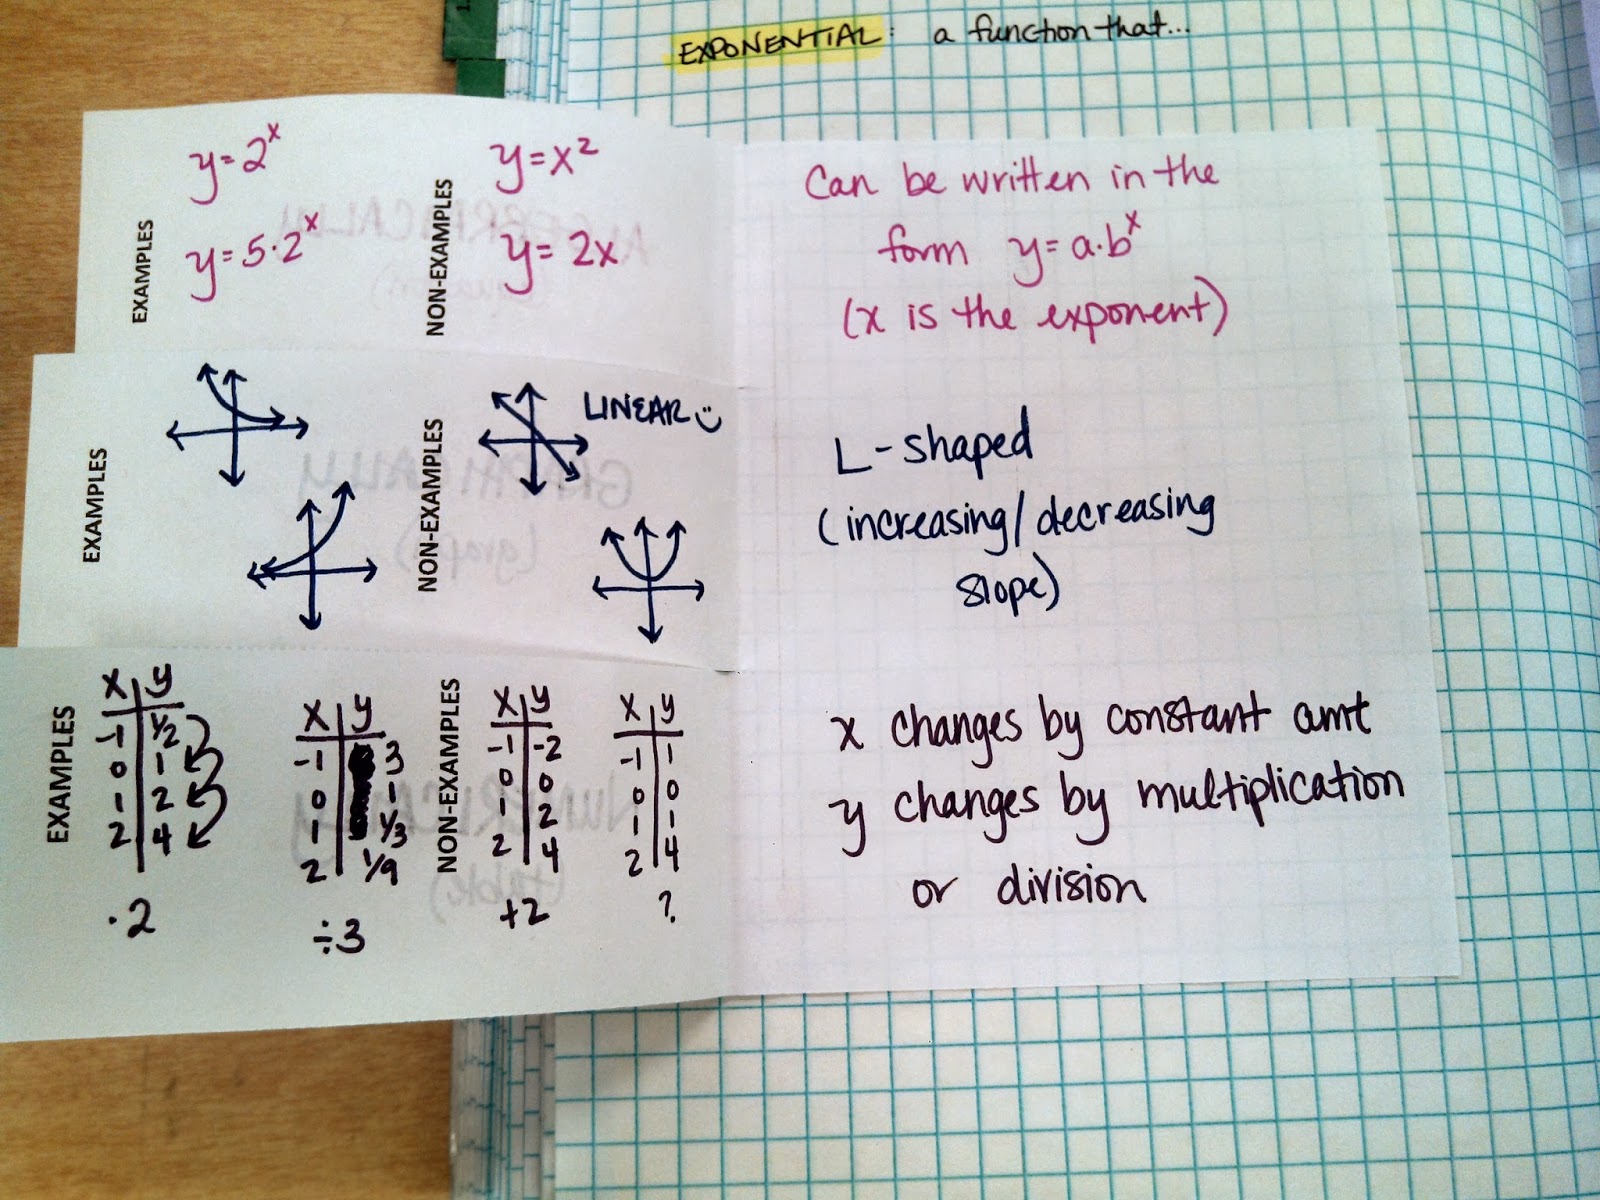 EXPONENTIAL: a function that...
EXAMPLES
y=2^x
y=5·2^x
NON-EXAMPLES
y=x²
y=2x
Can be written in the
form y=a·b^x
(x is the exponent)
EXAMPLES
NON-EXAMPLES
LINEAR
L-shaped
(increasing/decreasing
slope)
EXAMPLES
x y
-1 1/2
0 1
1 2
2 4
·2
x y
-1 3
0 1
1 1/3
2 1/9
÷3
NON-EXAMPLES
x y
-1 -2
0 0
1 2
2 4
+2
x y
-1 1
0 0
1 1
2 4
?
x changes by constant amt
y changes by multiplication
or division